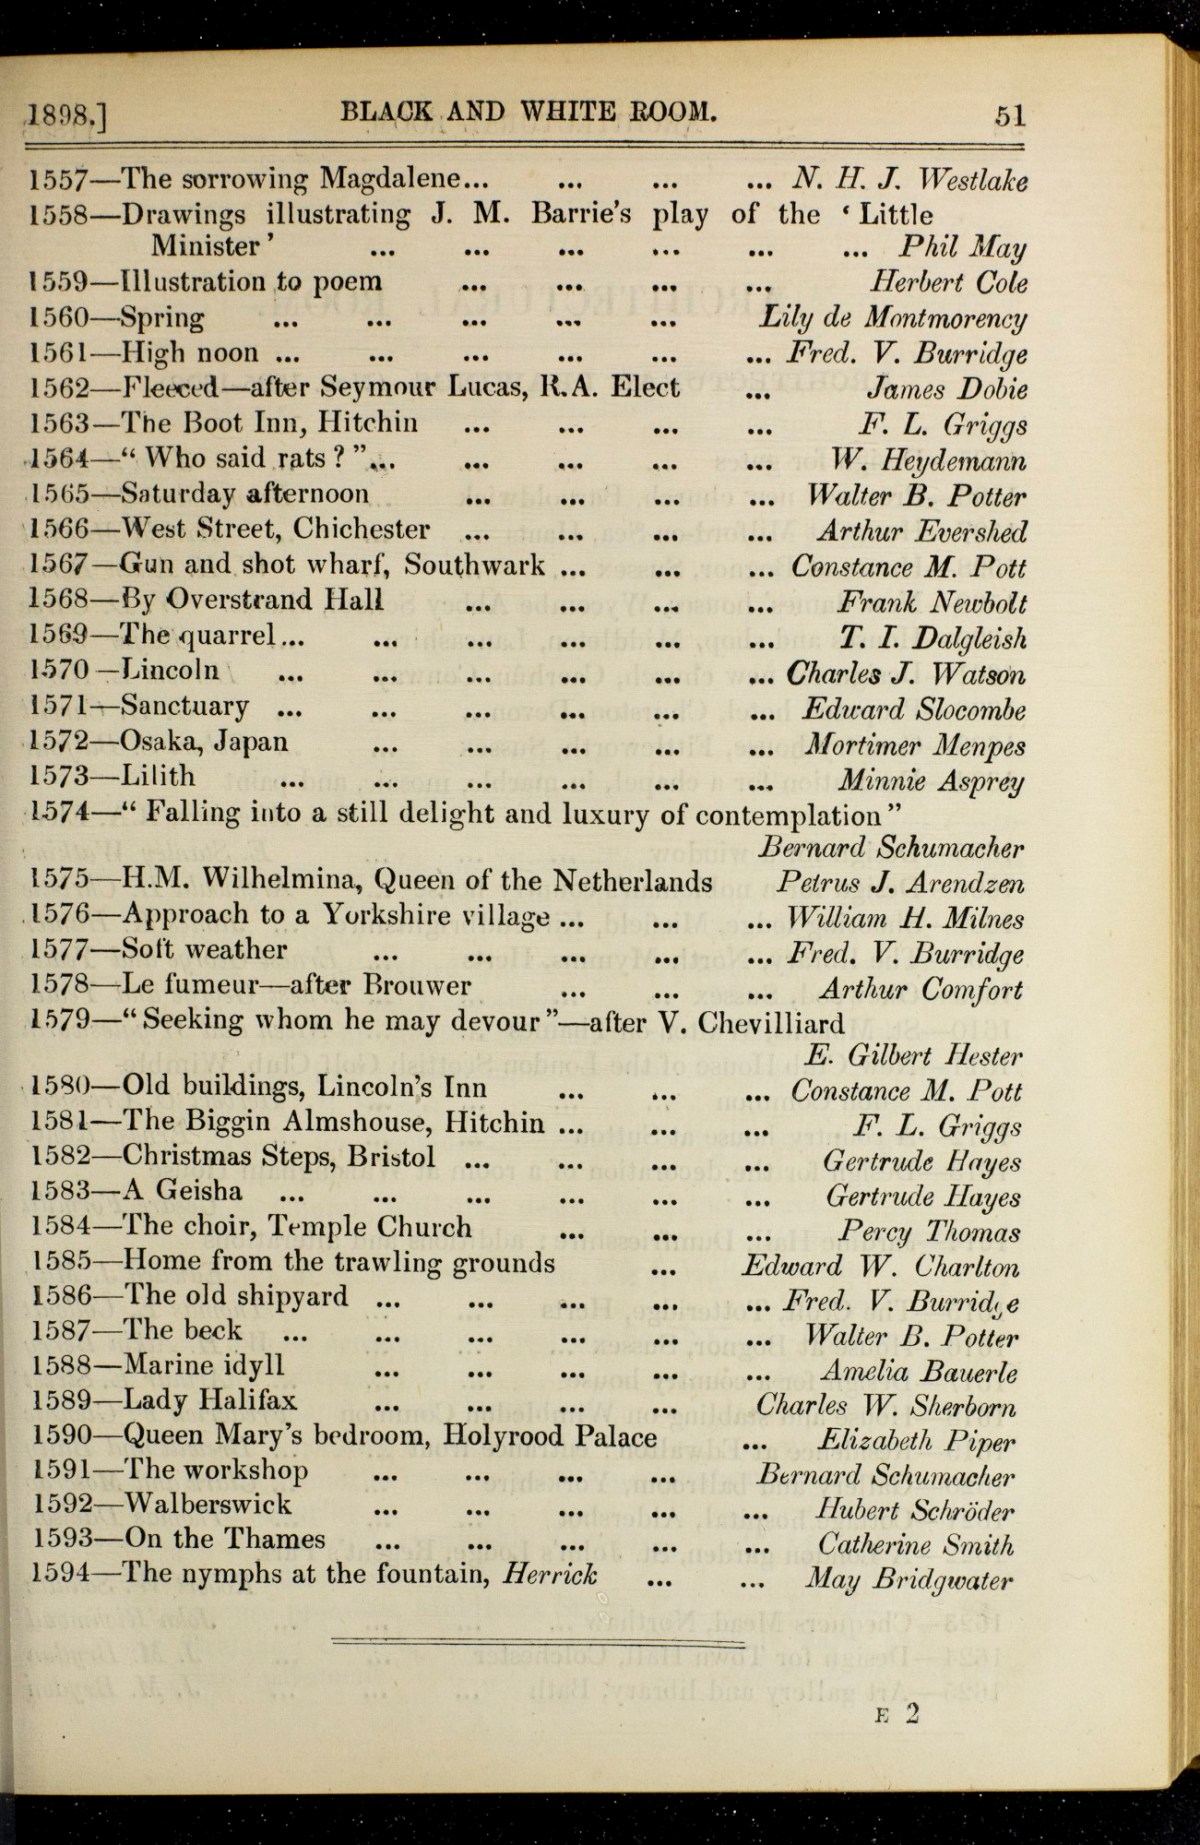 1898.] BLACK AND WHITE ROOM. 51
1557—The sorrowing Magdalene... ... ... ... N. H. J. Westlake
1558—Drawings illustrating J. M. Barrie's play of the ' Little
Minister ' ... ... ... ... ... ... Phil May
1559—Illustration to poem ... ... ... ... Herbert Cole
1560—Spring ... ... ... ... ... Lily de Montmorency
1561—High noon ... ... ... ... ... ... Fred. V. Burridge
1562—Fleeced—after Seymour Lucas, R.A. Elect ... James Dobie
1563—The Boot Inn, Hitchin ... ... ... ... F. L. Griggs
1564—" Who said rats ? "... ... ... ... ... W. Heydemann
1565—Saturday afternoon ... ... ... ... Walter B. Potter
1566—West Street, Chichester ... ... ... ... Arthur Evershed
1567—Gun and shot wharf, Southwark ... ... ... Constance M. Pott
1568—By Overstrand Hall ... ... ... ... Frank Newbolt
1569—The quarrel... ... ... ... ... ... T. I. Dalgleish
1570—Lincoln ... ... ... ... ... ... Charles J. Watson
1571—Sanctuary ... ... ... ... ... ... Edward Slocombe
1572—Osaka, Japan ... ... ... ... ... Mortimer Menpes
1573—Lilith ... ... ... ... ... ... Minnie Asprey
1574—" Falling into a still delight and luxury of contemplation "
Bernard Schumacher
1575—H.M. Wilhelmina, Queen of the Netherlands Petrus J. Arendzen
1576—Approach to a Yorkshire village ... ... ... William H. Milnes
1577—Soft weather ... ... ... ... ... Fred. V. Burridge
1578—Le fumeur—after Brouwer ... ... ... Arthur Comfort
1579—" Seeking whom he may devour "—after V. Chevilliard
E. Gilbert Hester
1580—Old buildings, Lincoln's Inn ... ... ... Constance M. Pott
1581—The Biggin Almshouse, Hitchin ... ... ... F. L. Griggs
1582—Christmas Steps, Bristol ... ... ... ... Gertrude Hayes
1583—A Geisha ... ... ... ... ... ... Gertrude Hayes
1584—The choir, Temple Church ... ... ... Percy Thomas
1585—Home from the trawling grounds ... Edward W. Charlton
1586—The old shipyard ... ... ... ... ... Fred. V. Burridge
1587—The beck ... ... ... ... ... ... Walter B. Potter
1588—Marine idyll ... ... ... ... ... Amelia Bauerle
1589—Lady Halifax ... ... ... ... Charles W. Sherborn
1590—Queen Mary's bedroom, Holyrood Palace ... Elizabeth Piper
1591—The workshop ... ... ... ... Bernard Schumacher
1592—Walberswick ... ... ... ... ... Hubert Schröder
1593—On the Thames ... ... ... ... ... Catherine Smith
1594—The nymphs at the fountain, Herrick ... ... May Bridgwater
E 2